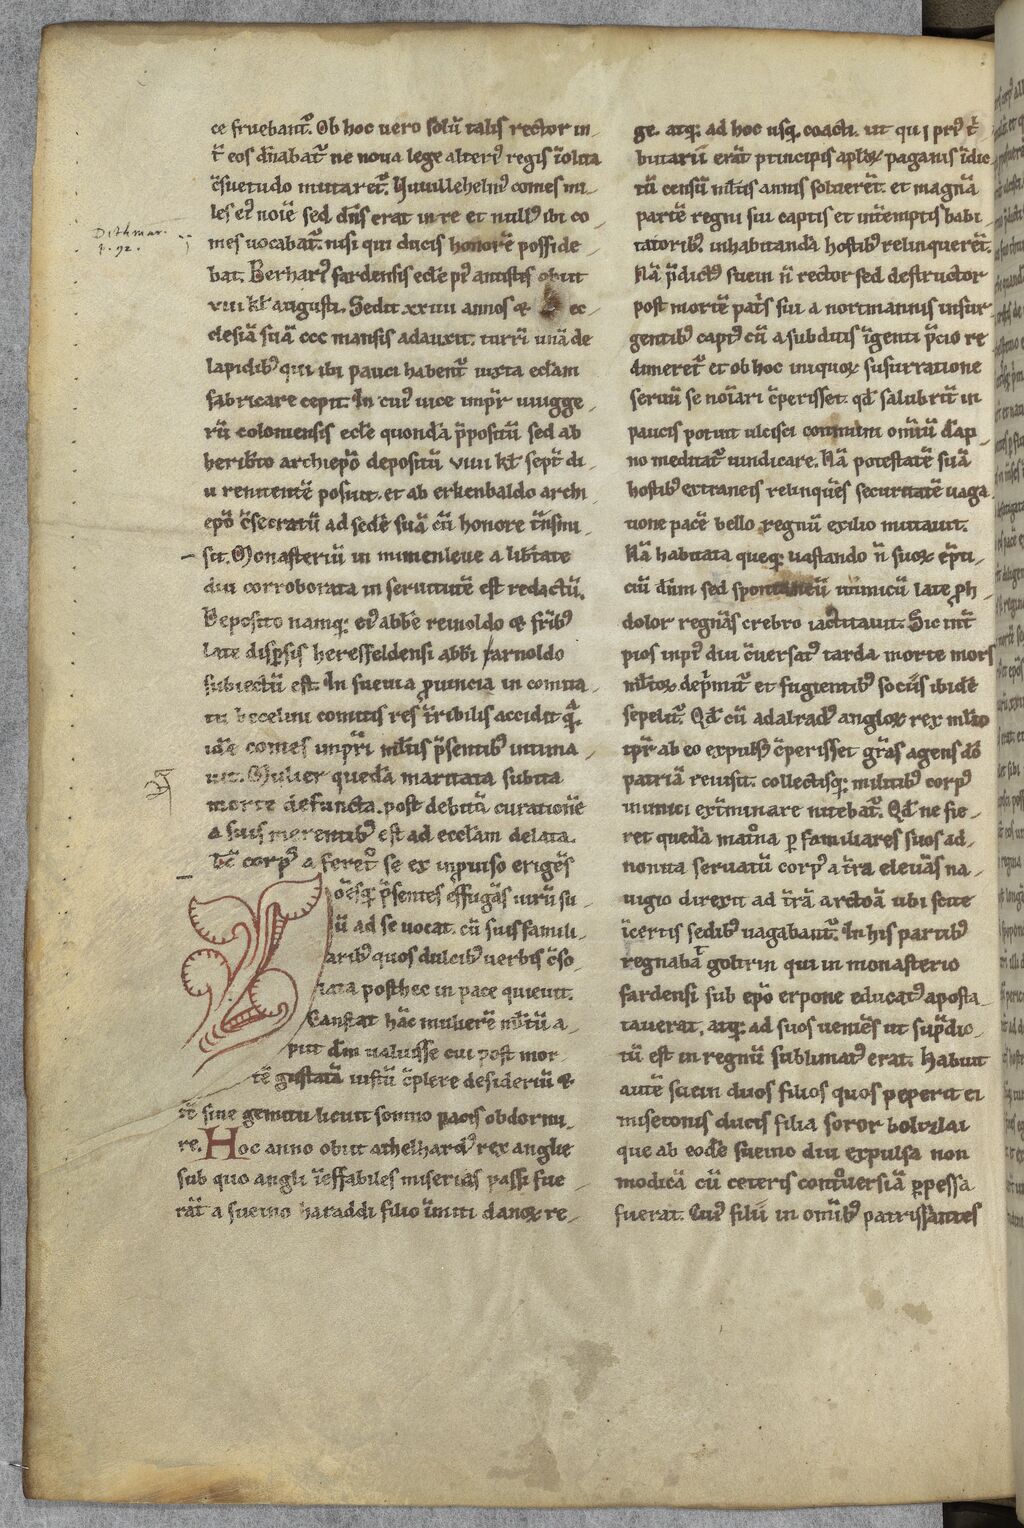 ce fruebant᷑. Ob hoc uero solũ talis rector in-
t̃ eos dñabat᷑ ne noua lege alteri᷒ regis ĩoluta
c̃suetudo mutaret᷑. Huuillehelm᷒ comes mi-
les ei᷒ noĩe sed dñs erat in re et null᷒ ibi co
mes uocabat᷑. nisi qui ducis honorẽ posside-
bat. Berhari᷒ fardensis eccłe pr̃ antistis obiit
viii kł augusti. Sedit xxiiii annos &
ec-
clesiã suã ccc mansis adauxit. turrĩ unã de
lapidib᷒ qui ibi pauci habent᷑ iuxta eccłam
fabricare cepit. In cui᷒ uice imp̃r uuigge-
rũ coloniensis eccłe quondã p̃positũ sed ab
heribto archiepõ depositũ viiii kł sept̃ di-
u renitentẽ posuit. et ab erkenbaldo archi
epõ c̃secratũ ad sedẽ suã cũ honore t̃nsmi-
sit. Monasteriũ in mimenleue a libtate
diu corroborata in seruitutẽ est redactũ.
Deposito namq; ei᷒ abbẽ reinoldo & frĩb᷒
late disp̃sis heresfeldensi abbi arnoldo
subiectũ est. In sueuia p̱uincia in comita-
tu becelini comitis res t̃ribilis accidit q̃
idẽ comes imp̃ri m̃ltis p̃sentib᷒ intima-
uit. Mulier quedã maritata subita
morte defuncta. post debitã curationẽ
a suis merentib᷒ est ad eccłam delata.
corp᷒ a feret᷑ se ex inp̱uiso erigẽs
oẽsq; p̃sentes effugãs uirũ su
ũ ad se uocat. cũ suis famili-
arib᷒ quos dulcib᷒ uerbis c̃so-
lata posthec in pace quieuit.
Canstat hãc mulierẽ m̃ltũ a-
put dñm ualuisse cui post mor-
tẽ gustatã iustũ c̃plere desideriũ &
it̃ sine gemitu licuit somno pacis obdormi-
re. Hoc anno obiit athelhard᷒ rex anglie
sub quo angli ĩeffabiles miserias passi fue-
rãt a sueino haraddi filio ĩmiti danoꝝ re-
ge. atq; ad hoc usq; coacti. ut qui pri᷒ t̃
butarii erãt principis apłoꝝ paganis ĩdic
tũ censũ m̃ltis annis soluerẽt. et magnã
partẽ regni sui captis et int̃emptis habi-
tatorib᷒. inhabitandã hostib᷒ relinquerẽt.
Nã p̃dict᷒ suein ñ rector sed destructor
post mortẽ pat̃s sui a nortmannis insur
gentib᷒ capt᷒ cũ a subditis ĩgenti p̃cio re
dimeret᷑ et ob hoc iniquoꝝ susurratione
seruũ se noĩari c̃perisset. qd̃ salubrit̃ in
paucis potuit ulcisci communi oĩũ dãp-
no meditat᷑ uindicare. Nã potestatẽ suã
hostib᷒ extraneis relinquẽs securitatẽ uaga
tione pacẽ bello regnũ exilio mutauit.
Nã habitata queq; uastando ñ suoꝝ ep̃ti-
ciũ dñm sed spontaneũ inimicũ late p̱h-
dolor regnãs crebro iactitauit. Sic int̃
pios inpi᷒ diu c̃uersat᷒ tarda morte mors
m̃ltoꝝ dep̃mit᷑ et fugientib᷒ sociis ibidẽ
sepelit᷑. Qd̃ cũ adalrad᷒ angloꝝ rex m̃lto
tp̃r ab eo expuls᷒ c̃perisset gr̃as agens dõ
patriã reuisit. collectisq; militib᷒ corp᷒
inimici ext̃minare nitebat᷑. Qd̃ ne fie-
ret quedã mat᷑na p̱ familiares suos ad-
nonita seruatũ corp᷒ a t̃ra eleuãs na-
uigio direxit ad t̃rã arctoã ubi scite
ĩcertis sedib᷒ uagabant᷑. In his partib᷒
regnabã goltrin qui in monasterio
fardensi sub epõ erpone educat᷒ aposta-
tauerat. atq; ad suos ueniẽs ut sup̃dic-
tũ est in regnũ sublimat᷒ erat. Habuit
autẽ suein duos filios quos peperit ei
misetonis ducis filia soror bolizlai
que ab eodẽ sueino diu expulsa non
modicã cũ ceteris contou᷑ersiã p̱pessa
fuerat. Cui᷒ filii in om̃ib᷒ patrissantes
Dithmar.
p. 92.